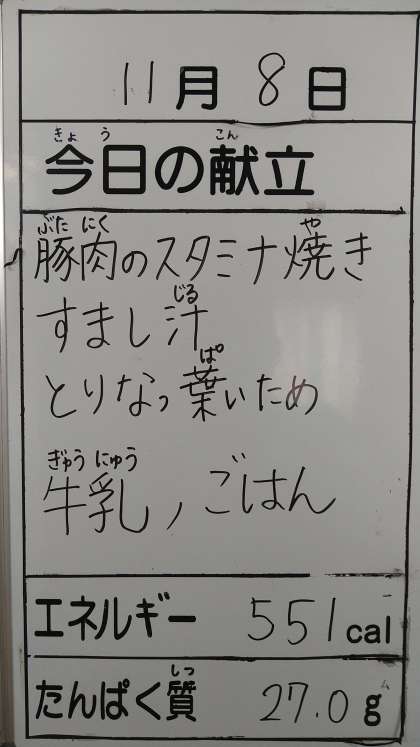 11月8日
きょう こん
今日の献立
ぶた にく や
豚肉のスタミナ焼き
じる
すまし汁
ぱ
とりなっ葉いため
ぎゅう にゅう
牛乳, ごはん
エネルギー 551cal
しつ
たんぱく質 27.0g